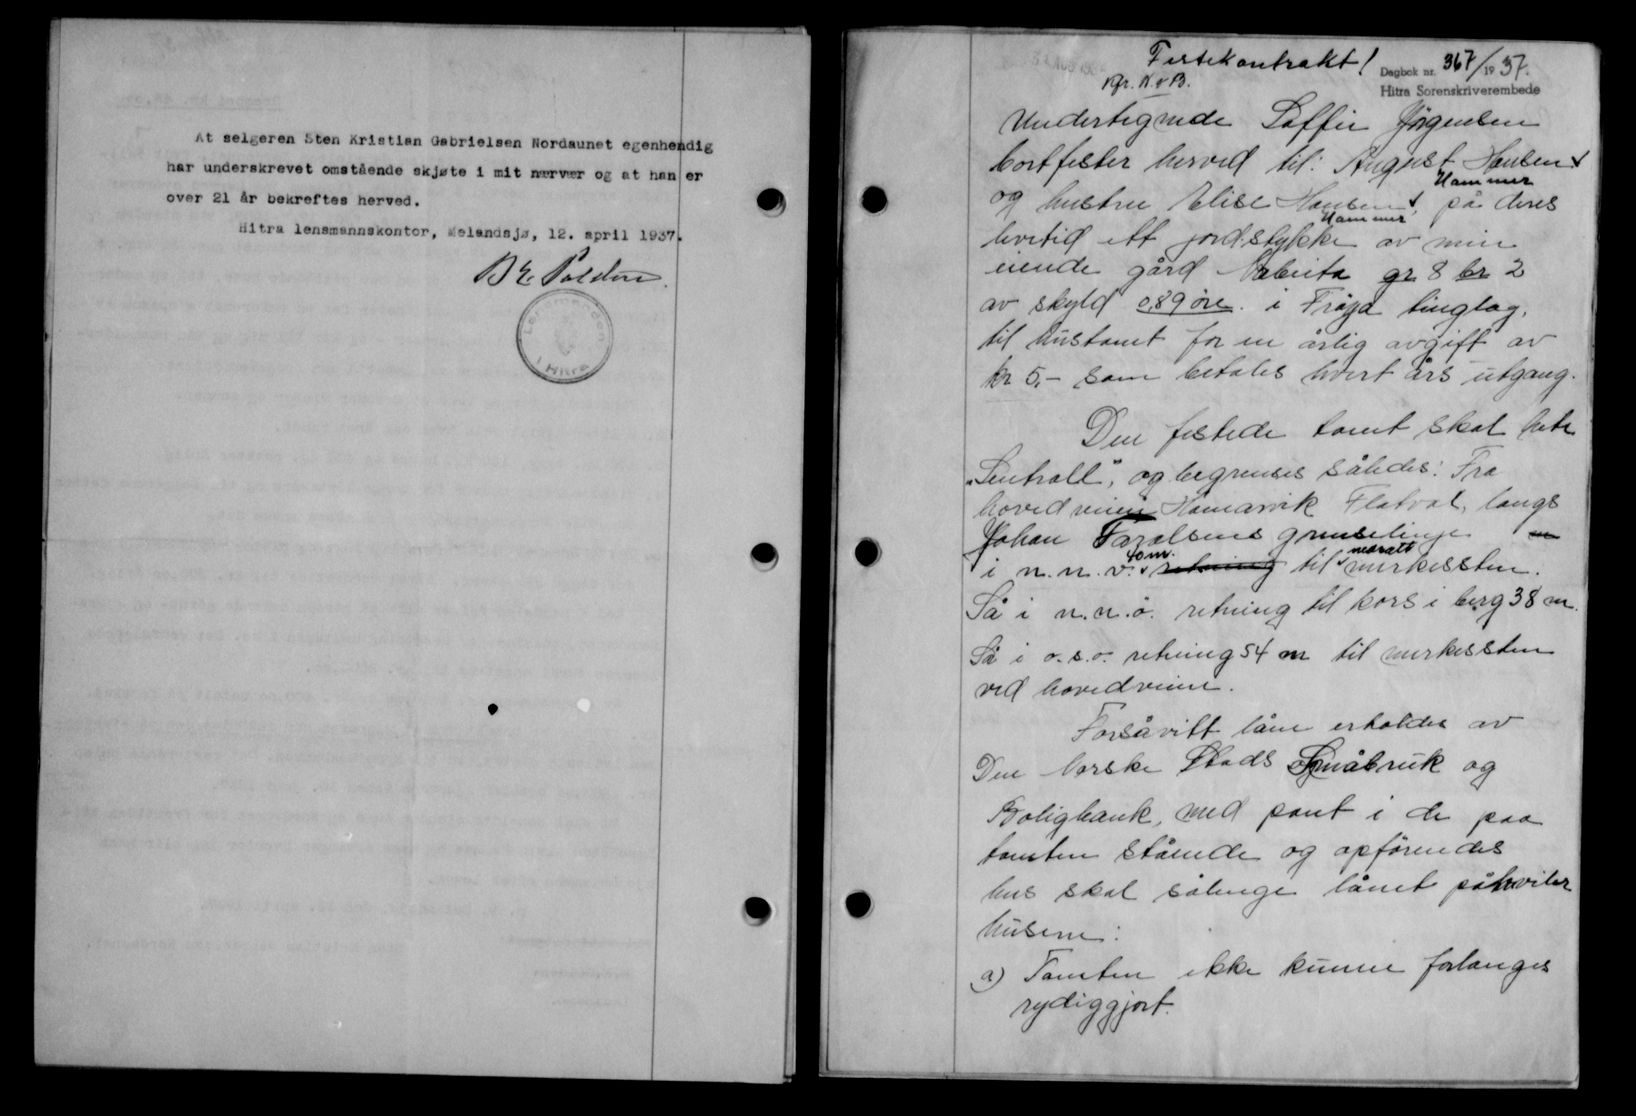 At selgeren Sten Kristian Gabrielsen Nordaunet egenhendig
har underskrevet omstående skjøte i mit nærvær og at han er
over 21 år bekreftes herved.
Hitra lensmannskontor, Melandsjø, 12. april 1937.
Lensmannen
i Hitra
Festekontrakt!
Dagbok nr. 367/1937.
Hitra Sorenskriverembede
Undertegnede Loffie Jørgensen
bortfester herved til: August Hansen
Hammer
og hustru Elise Hansen, på deres
Hammer
levetid ett jordstykke av min
eiende gård Nabeita gr 8 br 2
av skyld 0,89 øre. i Frøya tinglag,
til hustomt for en årlig avgift av
kr 5,- som betales hvert års utgang.
Den festede tomt skal hete
"Sentralt", og begrenses således: Fra
hovedveien Hamarvik Flatval, langs
Johan grenselinje
40 m. nedsatt
i n.n.v. retning til merkessten.
Så i n.n.ø. retning til kors i berg 38 m.
Så i ø.s.ø. retning 54 m til merkessten
ved hovedveien.
Forsåvitt låne erholdes av
Den Norske Stads Småbruk og
Boligbank, med pant i de paa
tomten stående og opførendes
hus skal sålenge lånet påhviler
husene:
a) Tomten ikke kunne forlanges
rydiggjort.